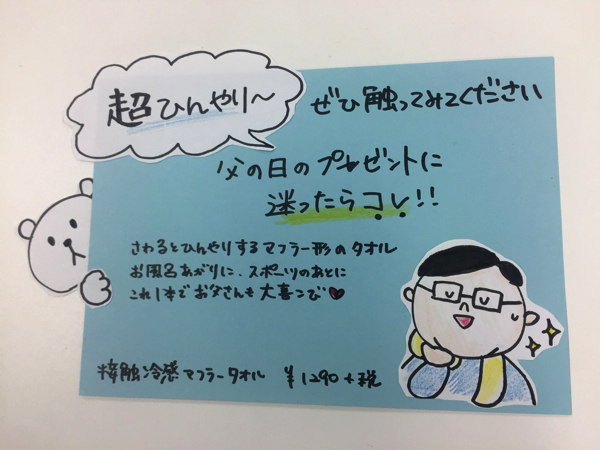 超ひんやり〜
ぜひ触ってみてください
父の日のプレゼントに
迷ったらコレ!!
さわるとひんやりするマフラー形のタオル
お風呂あがりに、スポーツのあとに
これ1本でお父さんも大喜こび♥
接触冷感マフラータオル ¥1290+税